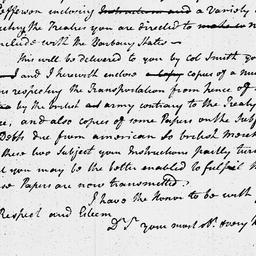 Jefferson enclosing Instructions and a Variety
the Treaties you are directed to make
with the Barbary States
This will be delivered to you by Col Smith
and I herewith enclose a Copy copies of a
respecting the Transportation from hence of
by the british and army contrary to the Treaty
and also copies of some Papers on the Subj
Debts due from american to british Merch
these two Subject your Instructions partly turn
you may be the better enabled to fulfil
Papers are now transmitted.
I have the Honor to be with
Respect and Esteem
Dr Sr your most obt. &